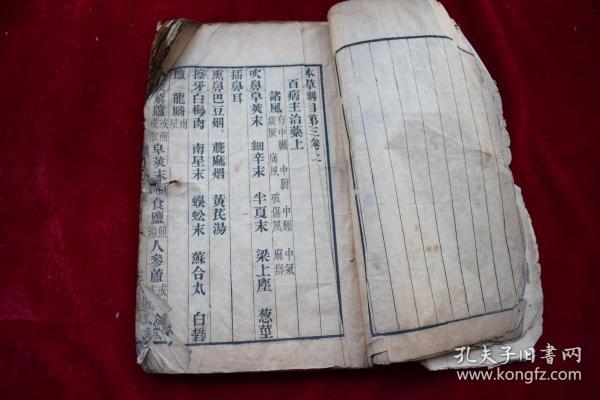 本草綱目第三卷上
百病主治藥上
諸風 有中臟 中腑 中經 中氣
痰厥 痛風 破傷風 麻痹
吹鼻皁莢末 細辛末 半夏末 梁上塵 葱莖
插鼻耳
熏鼻巴豆烟 蓖麻烟 黃芪湯
擦牙白梅肉 南星末 蜈蚣末 蘇合丸 白礬
鹽 龍腦 南星
藜蘆 或煎 皁莢末 食鹽 煎湯 人參蘆 或
孔夫子旧书网
www.kongfz.com